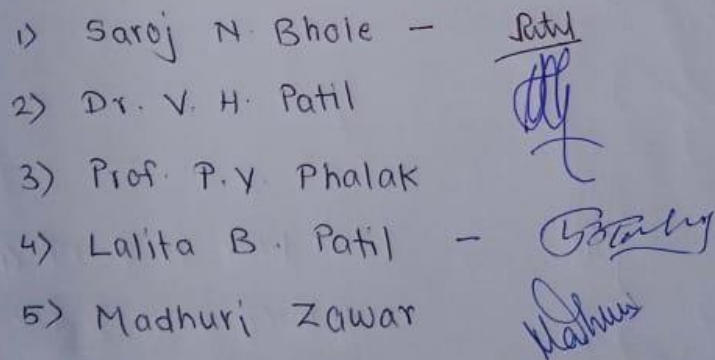 1) Saroj N. Bhole - Patil
2) Dr. V. H. Patil
3) Prof. P.Y. Phalak
4) Lalita B. Patil -
5) Madhuri Zawar Madhuri